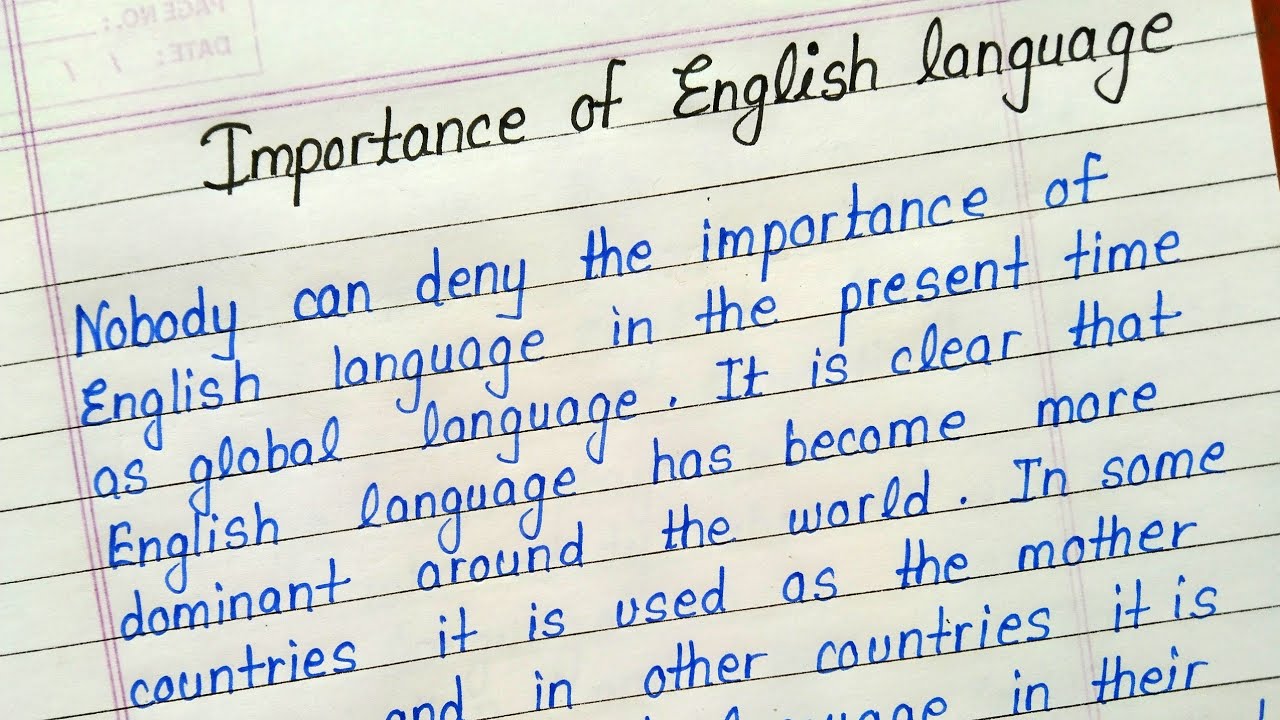 PAGE NO.:
DATE: / /
Importance of English language
Nobody can deny the importance of
English language in the present time
as global language. It is clear that
English language has become more
dominant around the world. In some
countries it is used as the mother
and in other countries it is
in their